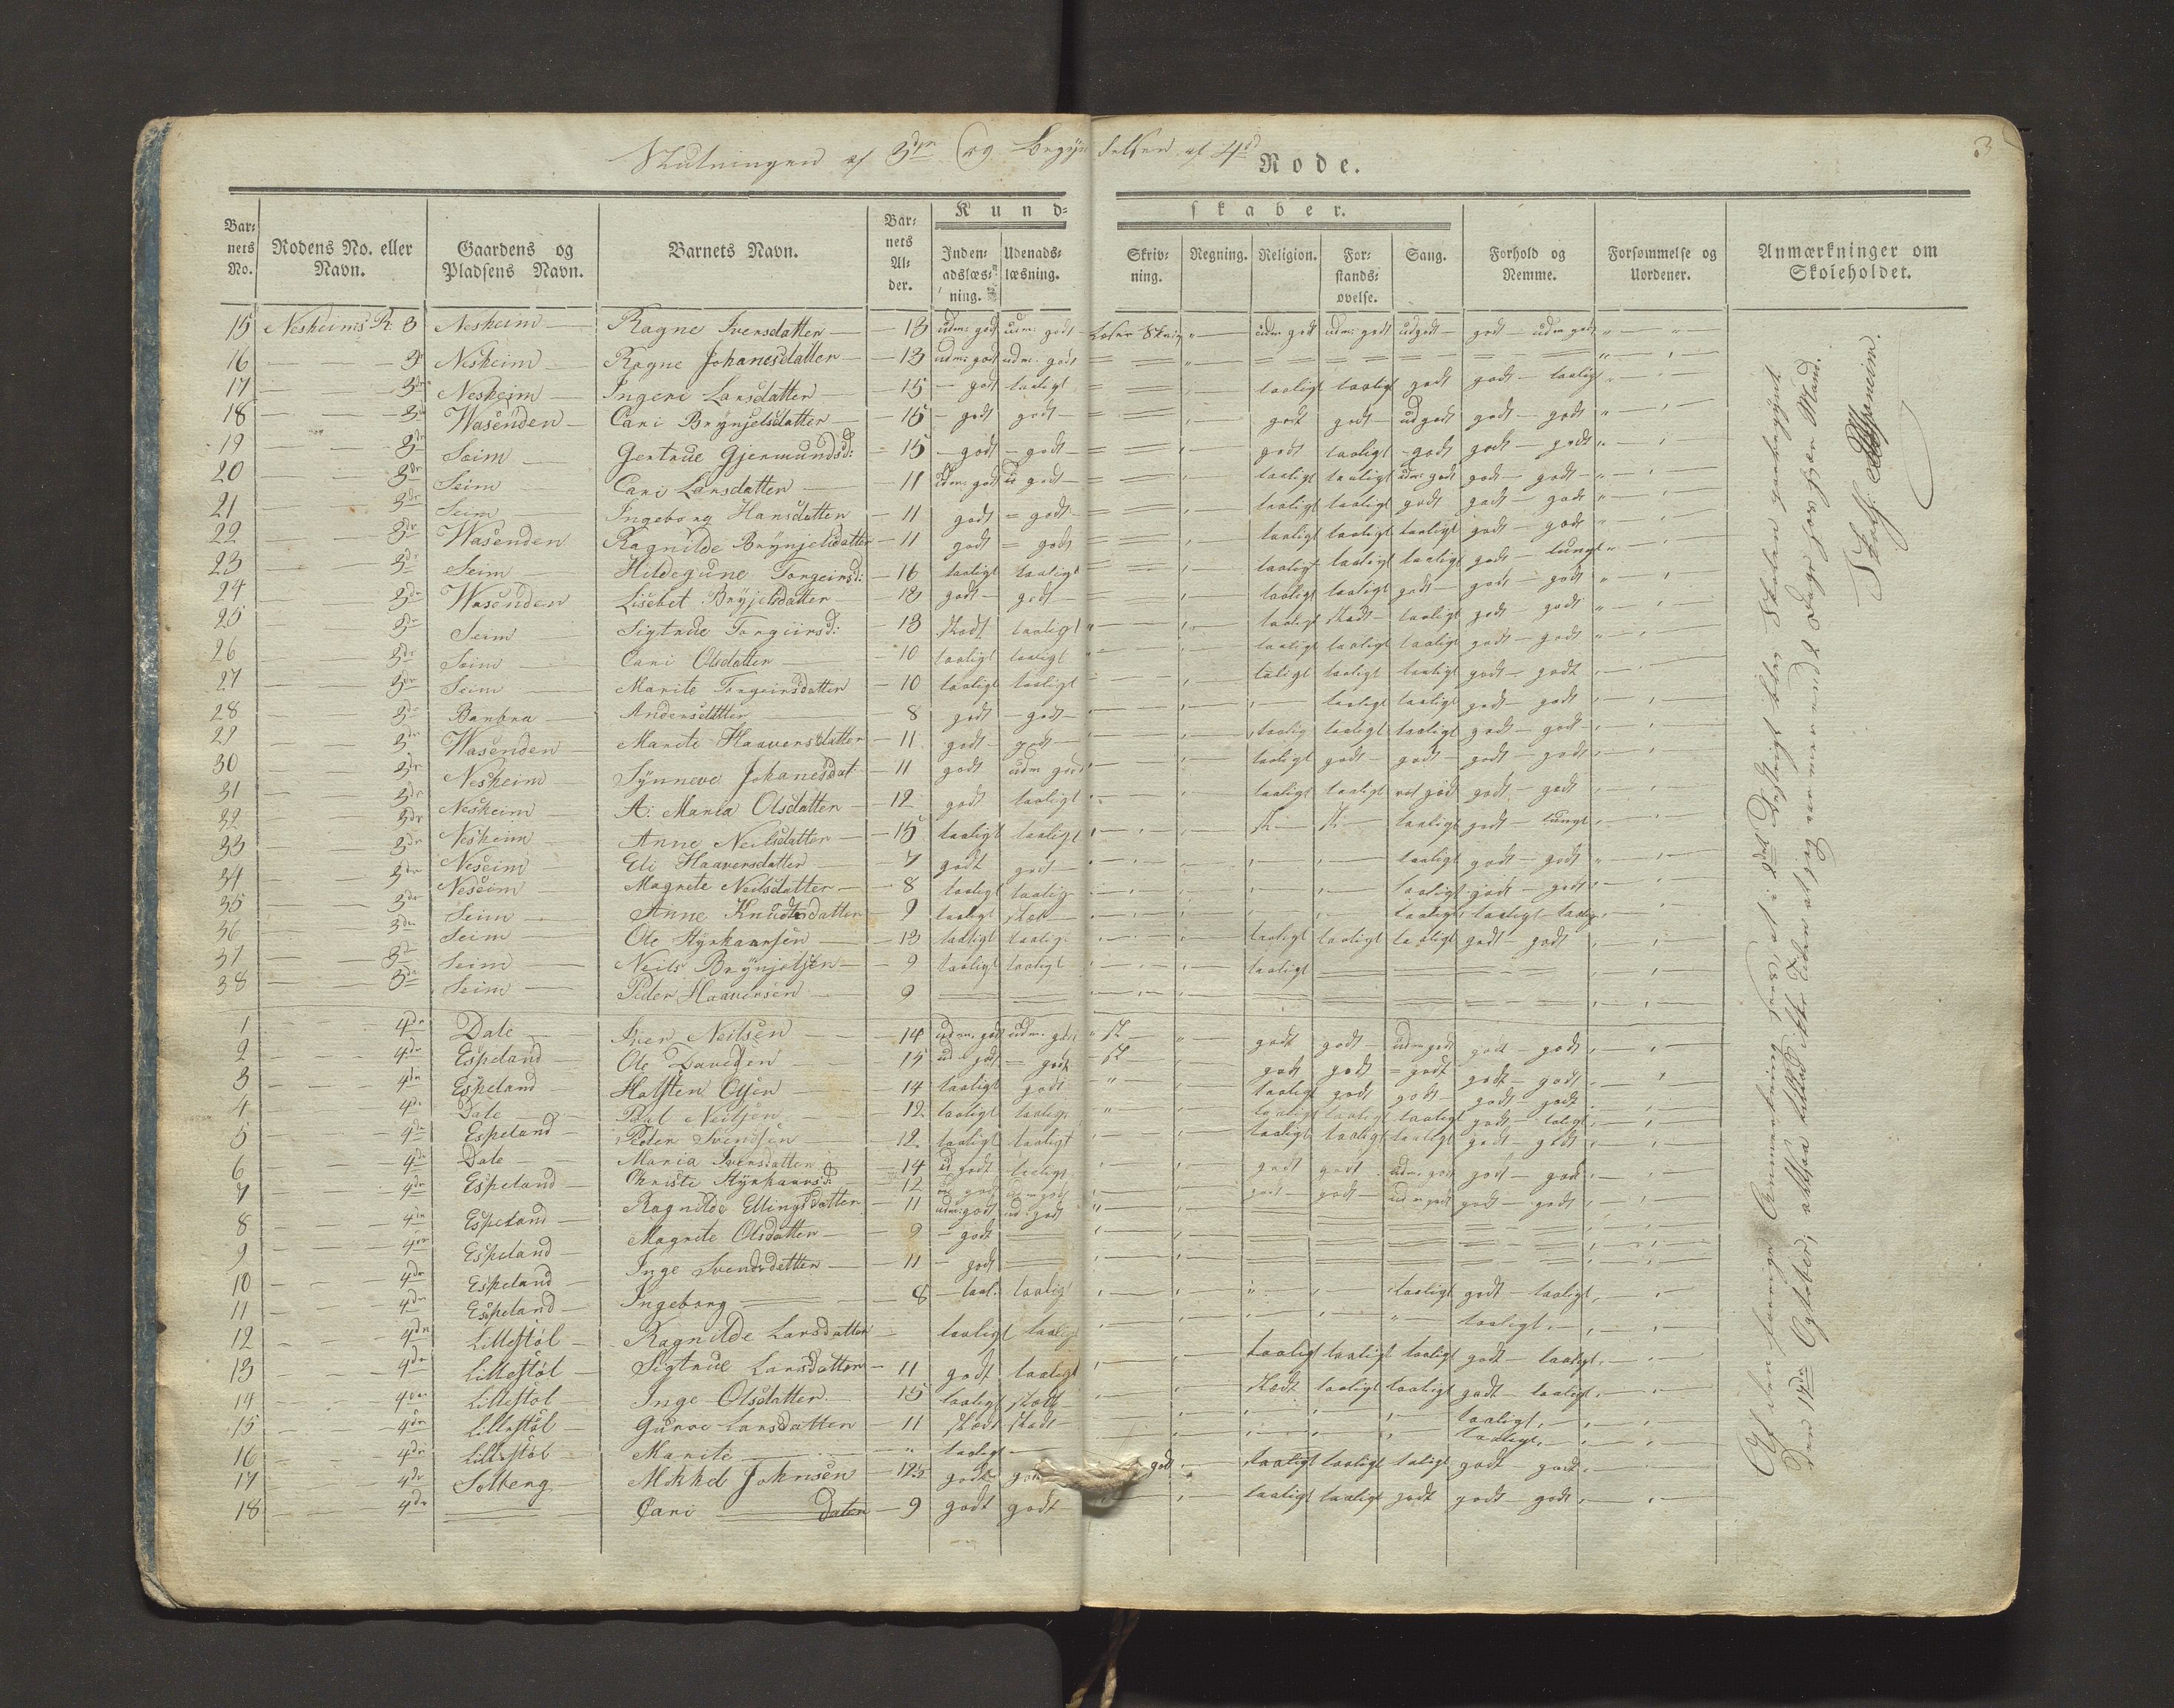 3
Slutningen af 3die og Begyndelsen af 4de Rode.
Barnets No. Rodens No. eller Navn. Gaardens og Pladsens Navn. Barnets Navn. Barnets Alder. Kundskaber. Inden-adslæsning. Udenads-læsning. Skrivning. Regning. Religion. Forstandsøvelse. Sang. Forhold og Nemme. Forsømmelse og Uordener. Anmærkninger om Skoleholdet.
15 Nesheims R. 3 Nesheim Ragne Iversdatter 13 udm: godt udm: godt Løser Skriv udm godt udm: godt ud godt godt - udm godt
16 3 Nesheim Ragne Johanesdatter 13 udm: godt udm: godt
17 3die Nesheim Ingeri Larsdatter 15 godt taaligt taaligt taaligt godt godt - taaligt
18 3die Wasenden Cari Brynjelsdatter 15 godt godt godt godt ud godt godt - godt
19 3die Seim Gertrue Gjermundsd: 15 godt godt godt taaligt godt godt - godt
20 3die Seim Cari Larsdatter 11 udm: godt ud godt taaligt taaligt udm: godt godt - godt
21 3die Seim Ingeborg Hansdatter 11 godt = godt taaligt taaligt godt godt - godt
22 3die Wasenden Ragnilde Brynjelsdatter 11 godt = godt taaligt taaligt taaligt godt - godt
23 3die Seim Hildegune Torgeirsd: 16 taaligt taaligt taaligt taaligt taaligt godt - tungt
24 3die Wasenden Lisebet Bryjelsdatter 13 godt godt taaligt taaligt godt godt - godt
25 3die Seim Sigtrue Torgiirsd: 13 slædt taaligt taaligt slædt taaligt godt - godt
26 3die Seim Cari Olsdatter 10 taaligt taaligt taaligt taaligt taaligt godt - godt
27 3die Seim Marite Torgeirsdatter 10 taaligt taaligt taligt taaligt taaligt godt - godt
28 3die Barbra Andersdatter 8 godt godt taaligt taaligt godt - godt
29 3die Wasenden Marite Haaversdatter 11 godt godt taalig taaligt taaligt godt - godt
30 3die Nesheim Synneve Johanesdat: 11 godt udm godt taaligt godt godt godt - godt
31 3die Nesheim A: Maria Olsdatter 12 godt taaligt taaligt taaligt godt godt - godt
32 3die Nesheim Anne Neilsdatter 15 taaligt taaligt sl. sl. taaligt godt - tungt
33 3die Neseim Eli Haaversdatter 7 godt godt taaligt godt - godt
34 3die Neseim Magrete Neilsdatter 8 taaligt taalig taaligt godt - godt
35 3die Seim Anne Knudtsdatter 9 taaligt taaligt taaligt - taalig
36 3die Seim Ole Styrkaarsen 13 taaligt taalig taaligt taaligt taaligt godt - godt
37 3die Seim Neils Brynjelsen 9 taaligt taaligt taaligt
38 3die Seim Peder Haaversen 9
1 4de Dale Iver Neilsen 14 udm. godt udm. godt sl. godt godt udm godt godt - godt
2 4de Espeland Ole Davidsen 15 ud godt = godt sl. godt godt = godt godt - godt
3 4de Espeland Halsten Olsen 14 taaligt godt taaligt godt godt godt - godt
4 4de Dale Poul Neilsen 12 taaligt taaligt taaligt taaligt taaligt godt - taligt
5 4de Espeland Peder Svendsen 12 taaligt taaligt taaligt taaligt taaligt godt - godt
6 4de Dale Maria Iversdatter 14 ud godt taaligt godt godt udm godt godt - godt
7 4de Espeland Christe Styrkaarsd: 12 ud godt udm godt godt godt udm godt godt - godt
8 4de Espeland Ragnilde Ellingsdatter 11 udm: godt ud: godt
9 4de Espeland Magrete Olsdatter 9 godt
10 4de Espeland Inge Svendsdatter 11 godt
11 4de Espeland Ingeborg 8 taal: taalig taaligt godt - taaligt
12 4de Lillestøl Ragnilde Larsdatter taaligt taalig taaligt
13 4de Lillestøl Sigtrue Larsdatter 11 godt taaligt taaligt taaligt taaligt godt - taaligt
14 4de Lillestøl Inge Olsdatter 15 taaligt slædt slædt taaligt taaligt godt - taaligt
15 4de Lillestøl Guroe Larsdatter 11 slædt slædt taaligt
16 4de Lillestøl Marite taaligt taaligt
17 4de Solberg Mikkel Johnsen 12½ godt godt godt taaligt taaligt taligt godt - godt
18 4de Cari Dater 9 godt godt taaligt taaligt godt godt - godt
Af den forrige Anmerkning sees, at i Distrigt blev Skolen paabegyndt
Den 17de Oktober, altsaa tiltod ikke Tiden at jeg var mer end 2 Dage hos hver Mand.